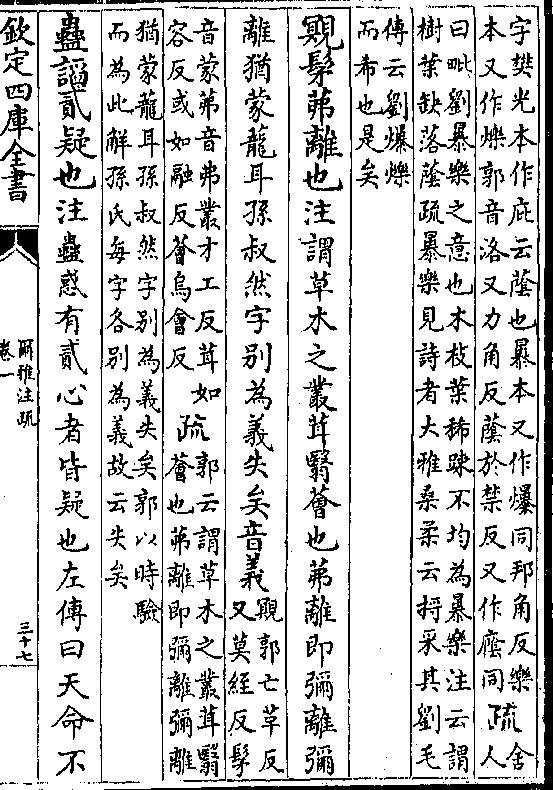 字樊光本作庇云蔭也㬥本又作爆同邦角反樂
本又作爍郭音洛又力角反蔭於禁反又作廕同
疏
舍
人
曰毗劉暴樂之意也木枝葉稀踈不均為暴樂注云謂
樹葉缺落蔭疏暴樂見詩者大雅桑柔云捋采其劉毛
傳云劉爆爍
而希也是矣
覭髳茀離也注謂草木之叢茸翳薈也茀離即彌離彌
離猶蒙蘢耳孫叔然字別為義失矣音義
覭郭亡草反
又莫經反髳
音蒙茀音弗叢才工反茸如
容反或如融反薈烏會反
疏
郭云謂草木之叢茸翳
薈也茀離即彌離彌離
猶蒙蘢耳孫叔然字別為義失矣郭以時驗
而為此解孫氏每字各別為義故云失矣
蠱謟貳疑也注蠱惑有貳心者皆疑也左傳曰天命不
欽定四庫全書
爾雅注疏
卷一
三十七